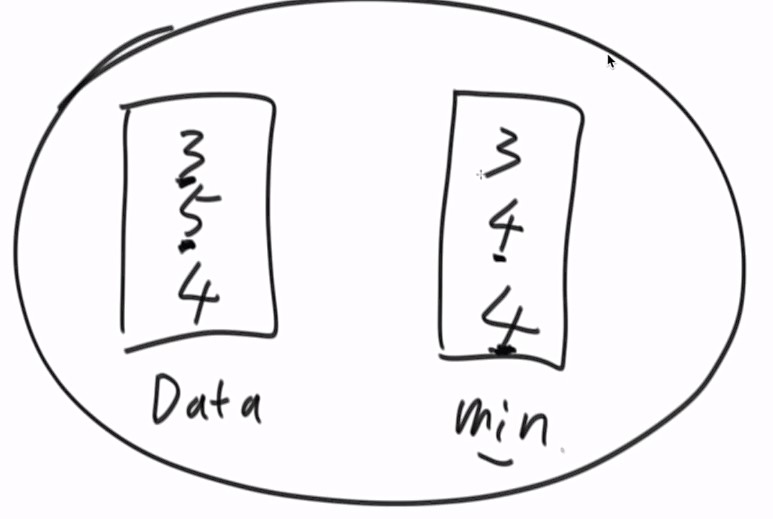 3
5
4
Data
3
4
4
min